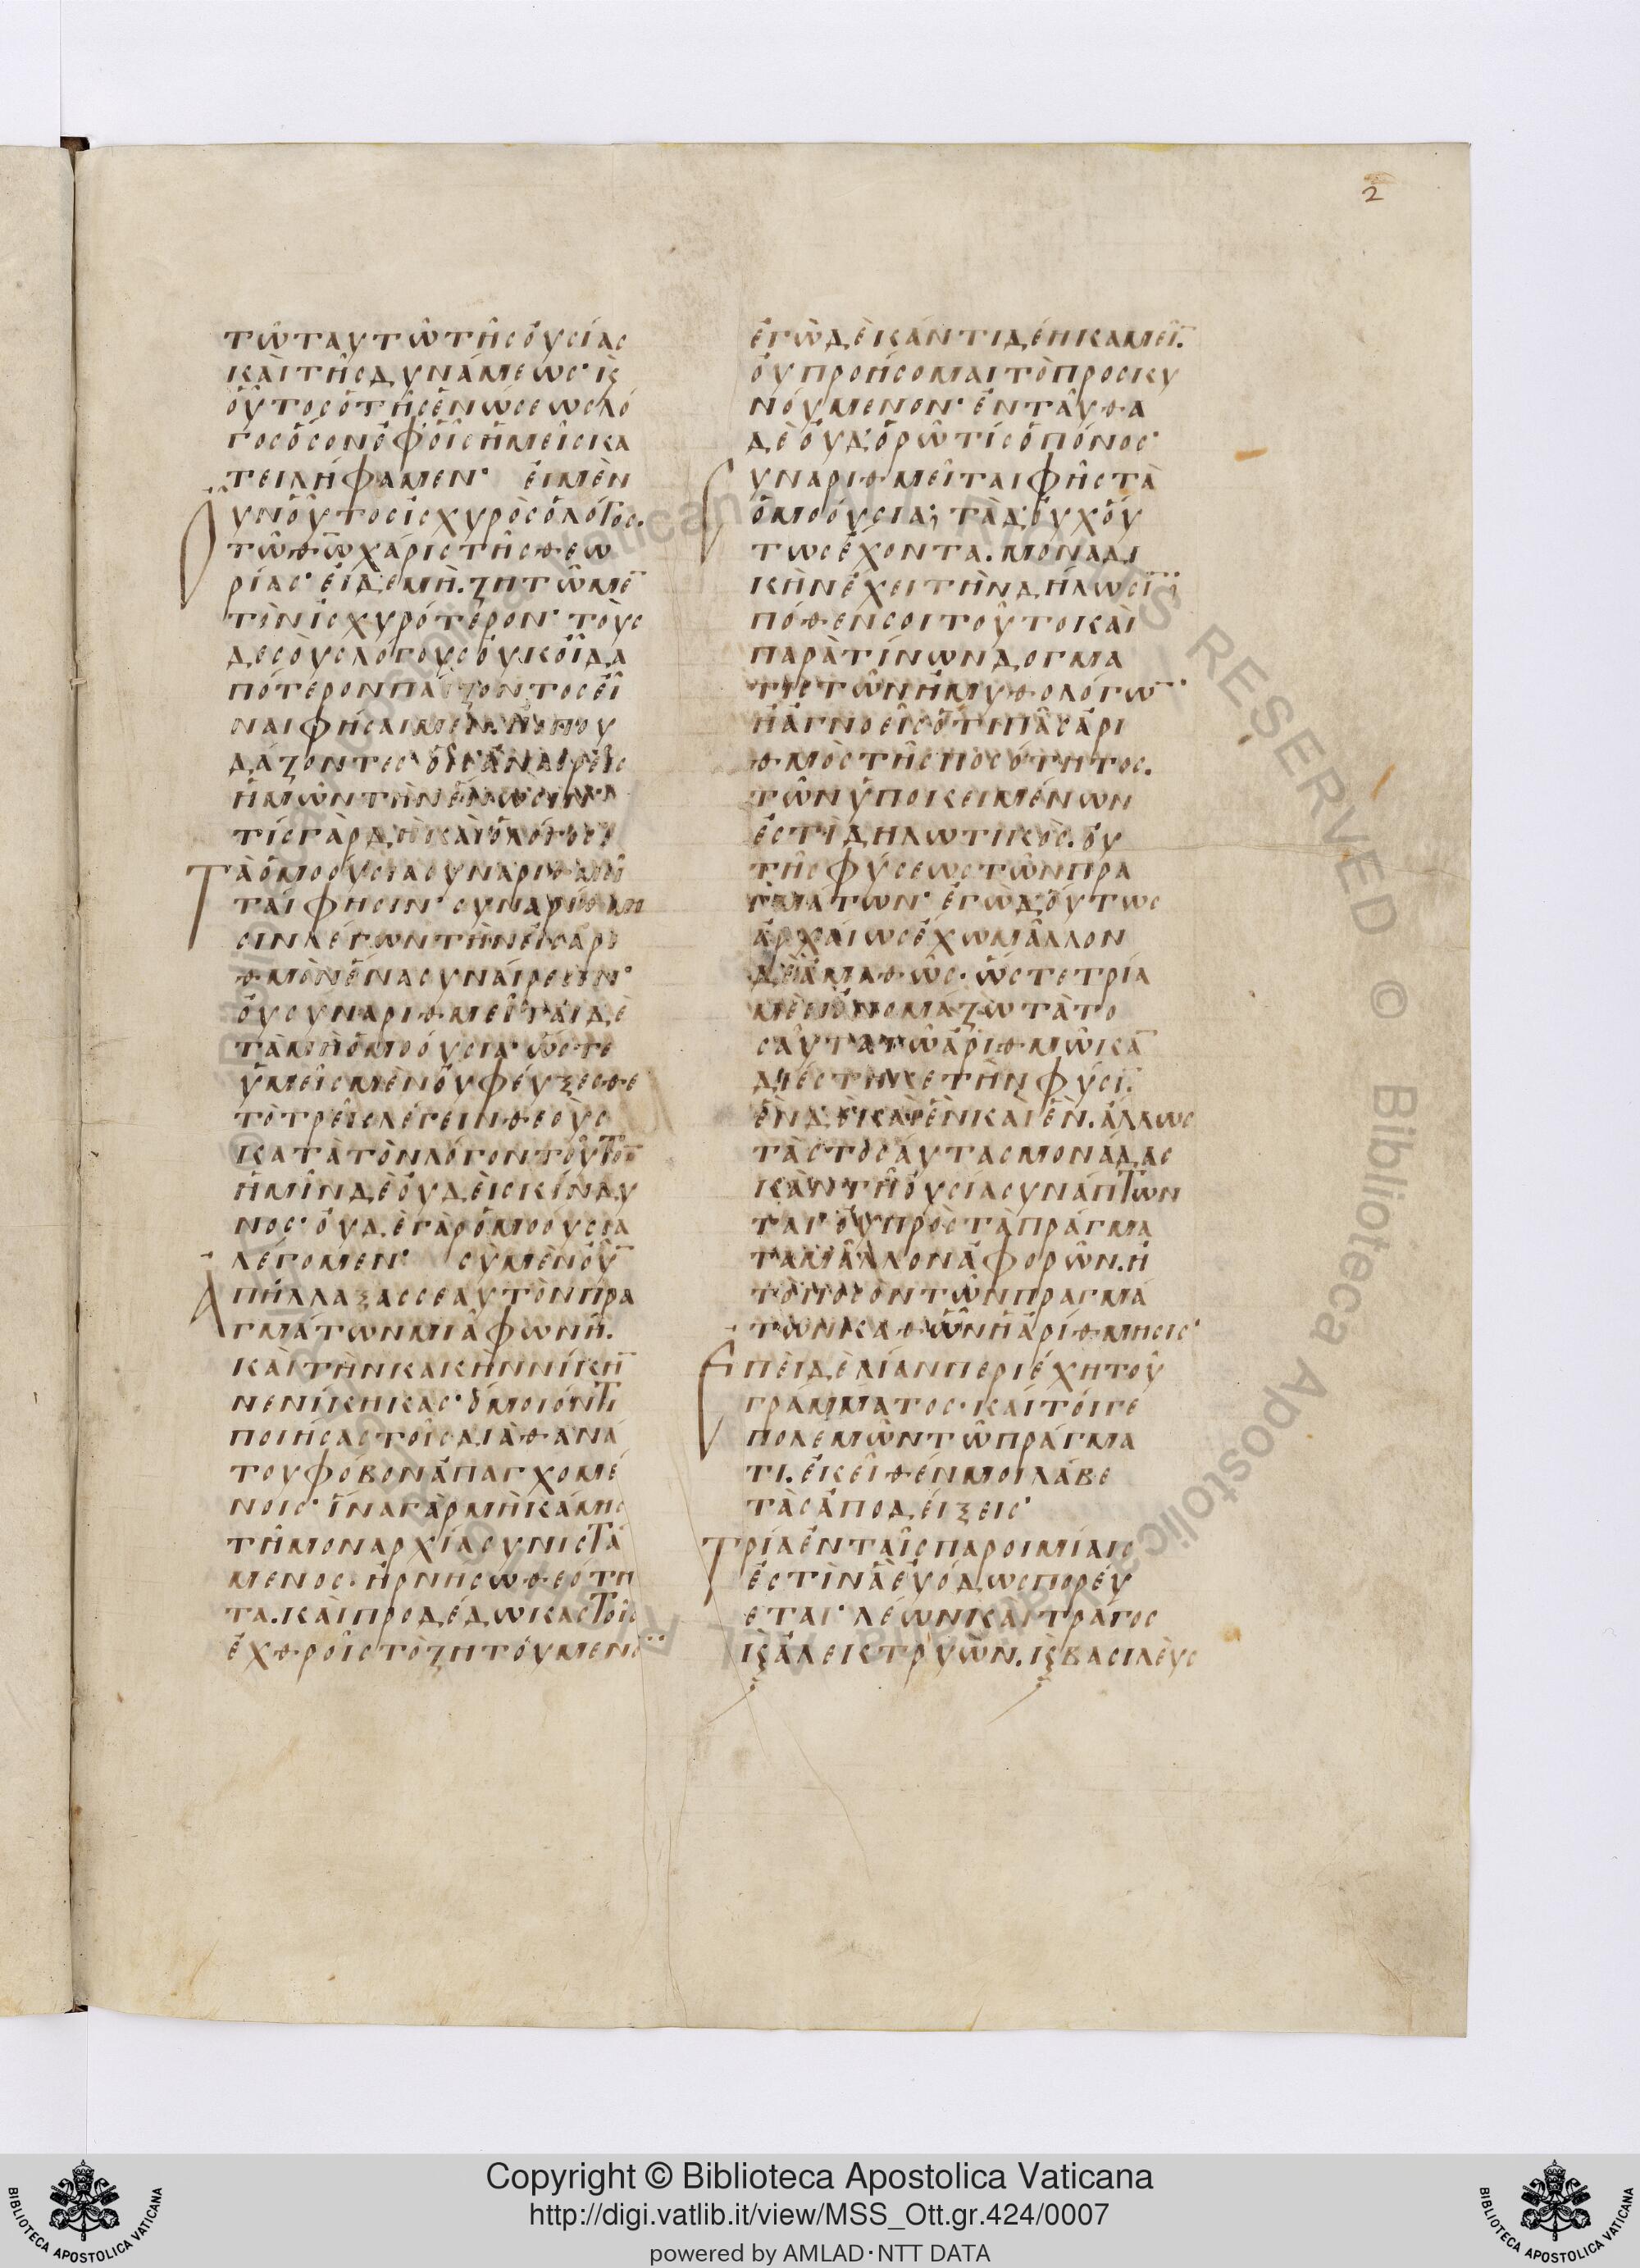 2
τῶ ταυτῶ τῆς οὐσίας
καὶ τῆς δυνάμεως· κ(αὶ)
οὗτος ὁ τῆς ἑνώσεως λό
γος ὅσον ἐφ' οἷς ἡμεῖς κα
τειλήφαμεν· εἰ μὲν
Οὖν οὗτος ἰσχυρὸς ὁ λόγος.
τῶ θ(ε)ῶ χάρις τῆς θεω
ρίας· εἰ δὲ μὴ. ζητῶμε̄
τὸν ἰσχυρότερον· τοὺς
δὲ σοὺς λόγους οὐκ οἶδα
πότερον παίζοντος εἶ
ναι φήσαιμεν. ἢ σπου
δάζοντος οὓς ἀναιρεῖς
ἡμῶν τὴν ἕνωσιν·
τίς γὰρ δὴ καὶ ὁ λόγος·
Τὰ ὁμοούσια συναριθμεῖ
ται φησίν· συναρίθμη
σιν λέγων τὴν εἰς ἀρι
θμὸν ἕνα συναίρεσιν·
οὐ συναριθμεῖται δὲ
τὰ μὴ ὁμοούσια· ὥστε
ὑμεῖς μὲν οὐ φεύξεσθε
τὸ τρεῖς λέγειν θεοὺς
κατὰ τὸν λόγον τοῦτο̄
ἡμῖν δὲ οὐδεὶς κίνδυ
νος· οὐδὲ γὰρ ὁμοούσια
λέγομεν· σὺ μὲν οὖ̄
Ἀπήλλαξας σεαυτὸν πρα
γμάτων μιᾶ φωνῆ.
καὶ τὴν κακὴν νίκη̄
νενίκηκας· ὅμοιόν τι
ποιήσας τοῖς διὰ θανά
του φόβον ἀπαγχομέ
νοις· ἵνα γὰρ μὴ κάμης
τῆ μοναρχία συνιστά
μενος. ἠρνήσω θεότη
τα. καὶ προδέδωκας τοῖς
ἐχθροῖς τὸ ζητούμενο̄·
ἐγὼ δὲ κἄν τι δέη καμεῖ̄.
οὐ προήσομαι τὸ προσκυ
νούμενον· ἐνταῦθα
δὲ οὐδ' ὁρῶ τίς ὁ πόνος·
Συναριθμεῖται φῂς τὰ
ὁμοούσια; τὰ δ' οὐχ οὕ
τως ἔχοντα. μοναδι
κὴν ἔχει τὴν δήλωσῑ;
πόθεν σοι τοῦτο καὶ
παρὰ τίνων δογμα
τιστῶν ἢ μυθολόγω̄·
ἢ ἀγνοεῖς ὅτι πᾶς ἀρι
θμὸς τῆς ποσότητος.
τῶν ὑποκειμένων
ἐστὶ δηλωτικὸς. οὐ
τῆς φύσεως τῶν πρα
γμάτων· ἐγὼ δ' οὕτως
ἀρχαίως ἔχω μᾶλλον
δὲ ἀμαθῶς. ὥστε τρία
μὲν ὀνομάζω τὰ το
σαῦτα τῶ ἀριθμῶ κᾱ
διέστηκε τὴν φύσῑ.
ἓν δὲ καὶ ἓν καὶ ἓν. ἄλλως
τὰς τοσαύτας μονάδας
κἂν τῆ οὐσία συνάπτων
ται· οὐ πρὸς τὰ πράγμα
τα μᾶλλον ἀφορῶν. ἢ
τὸ ποσὸν τῶν πραγμά
των καθ' ὧν ἡ ἀρίθμησις·
Ἐπεὶ δὲ λίαν περιέχη τοῦ
γράμματος. καίτοιγε
πολεμῶν τῶ πράγμα
τι. ἐκεῖθέν μοι λάβε
τὰς ἀποδείξεις·
Τρία ἐν ταῖς παροιμίαις
ἐστὶν ἃ εὐόδως πορεύ
εται· λέων καὶ τράγος
κ(αὶ) ἀλεκτρυών. κ(αὶ) βασιλεὺς
Copyright © Biblioteca Apostolica Vaticana
http://digi.vatlib.it/view/MSS_Ott.gr.424/0007
powered by AMLAD·NTT DATA